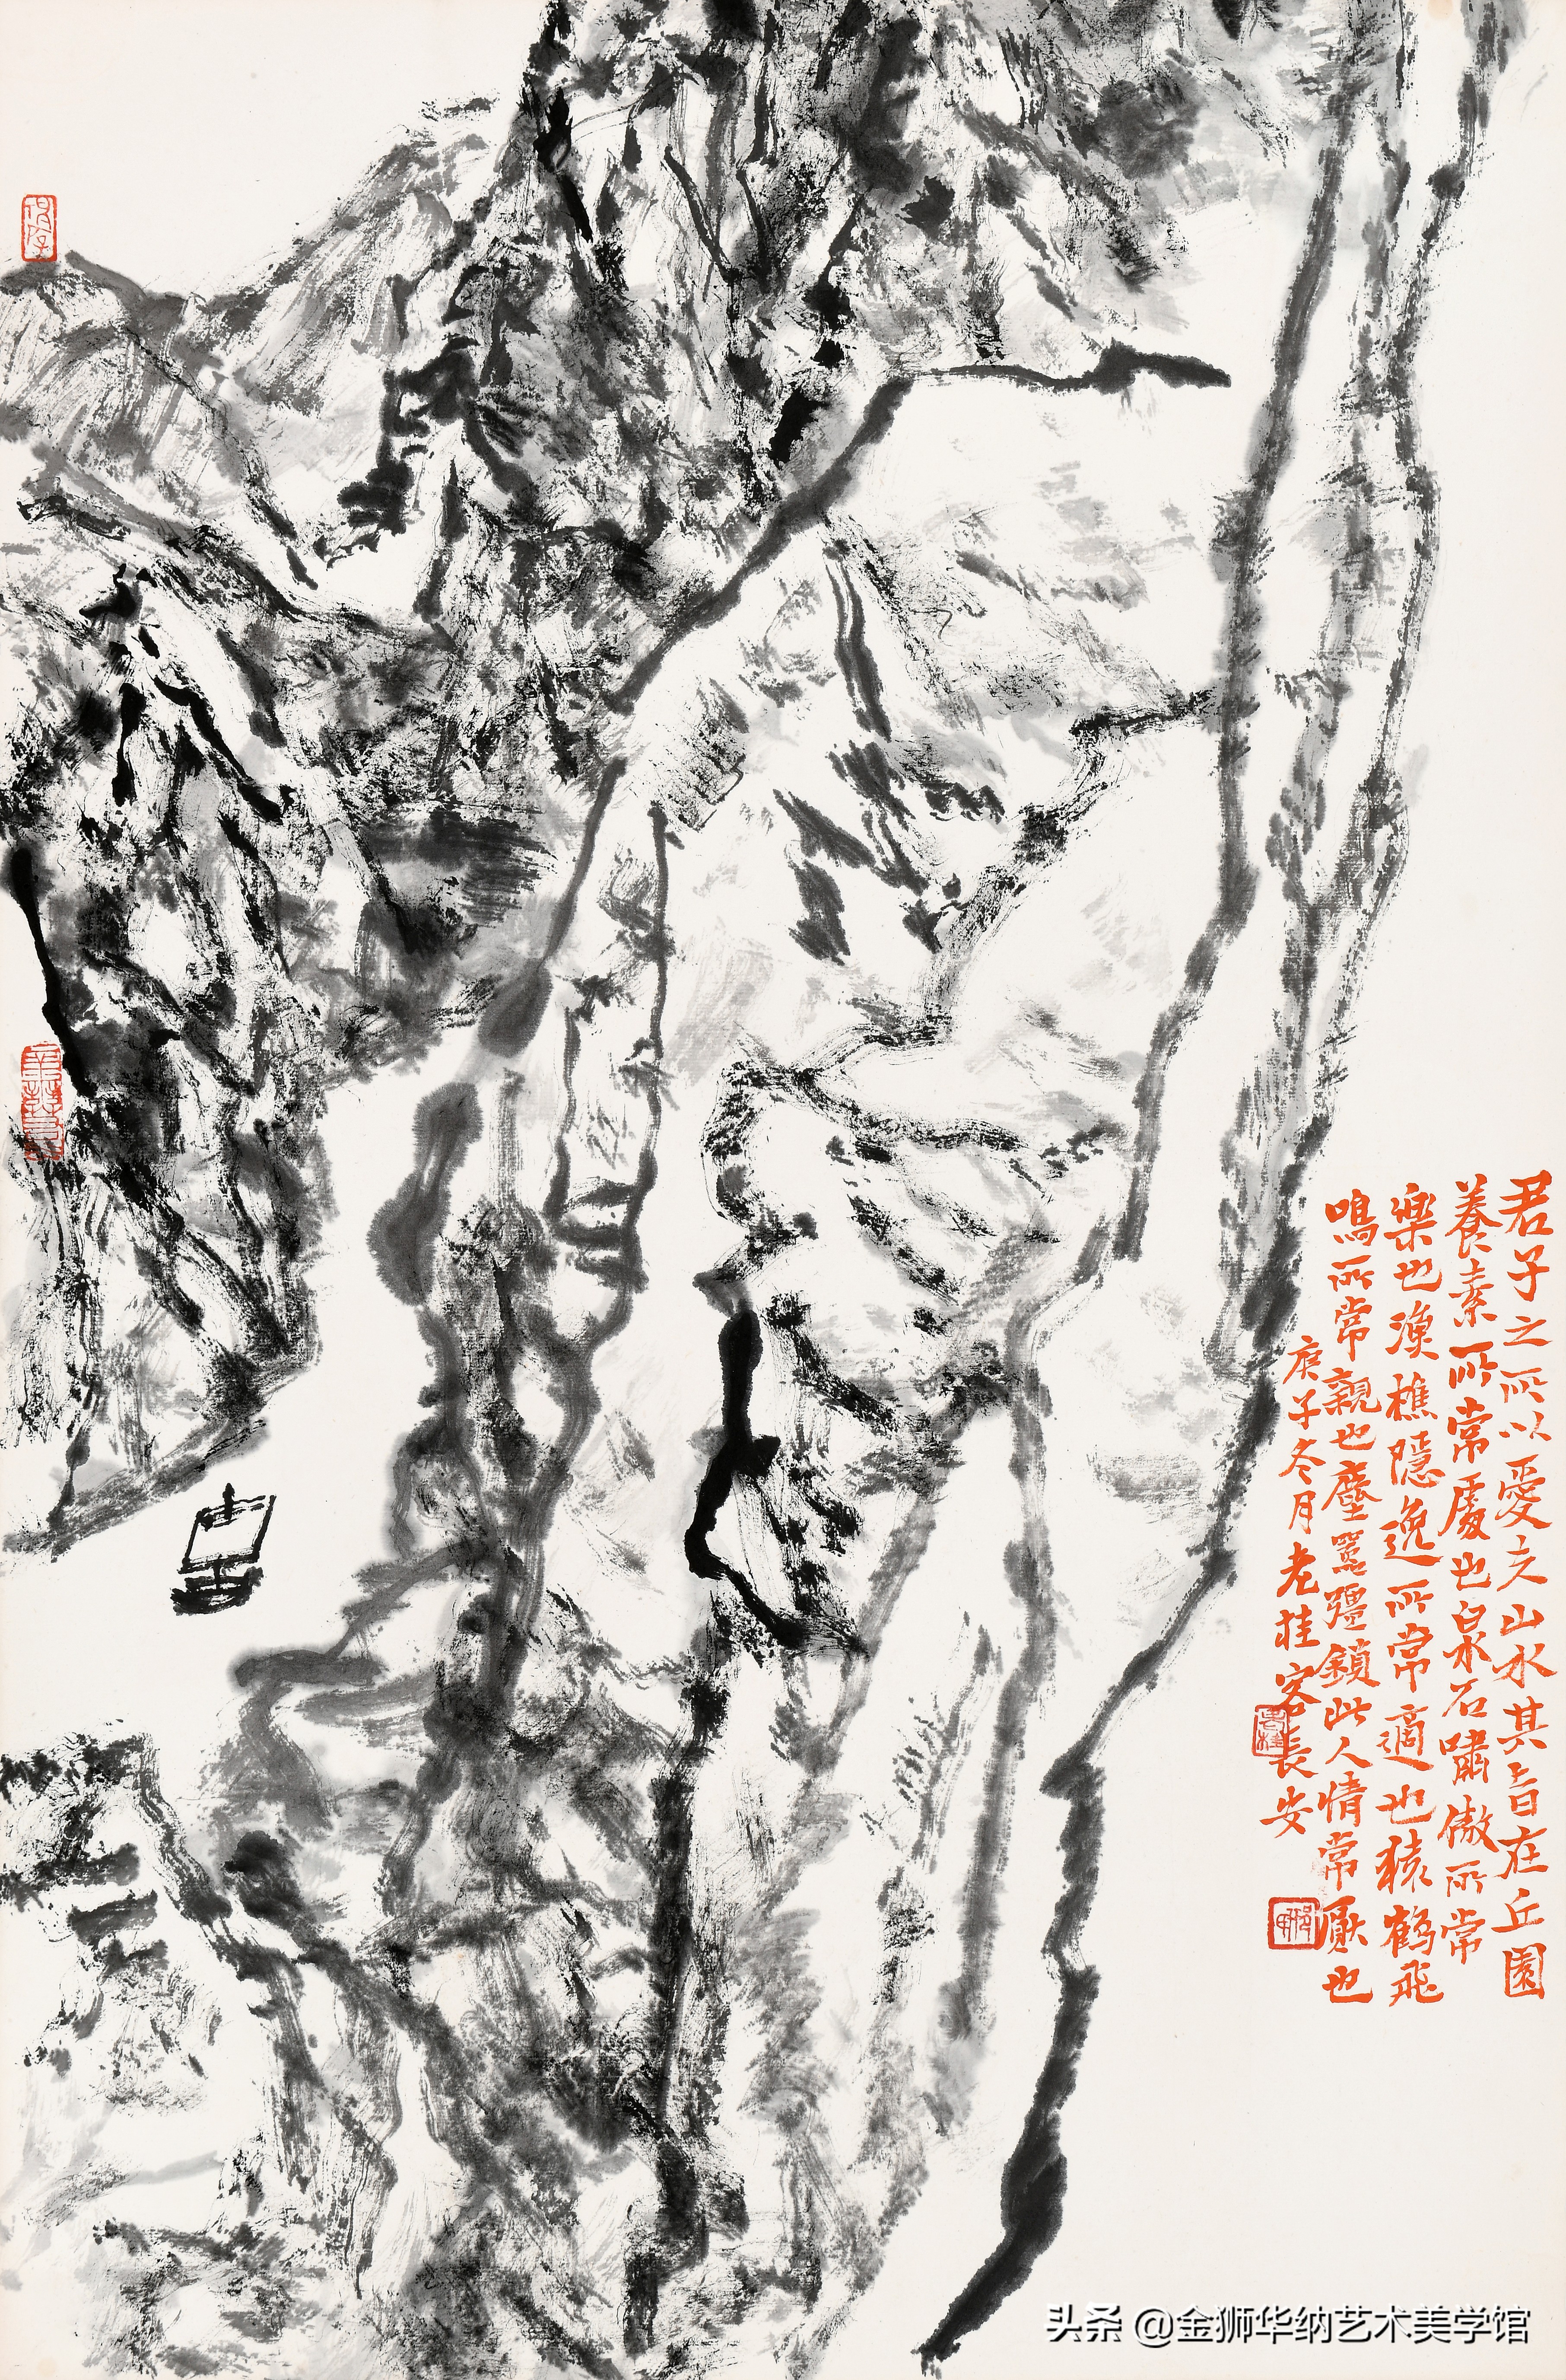 君子之所以愛夫山水其旨在丘園
養素所常處也泉石嘯傲所常
樂也漁樵隱逸所常適也猿鶴飛
鳴所常親也塵囂疆鎖此人情常厭也
庚子冬月老桂客長安
头条 @金狮华纳艺术美学馆